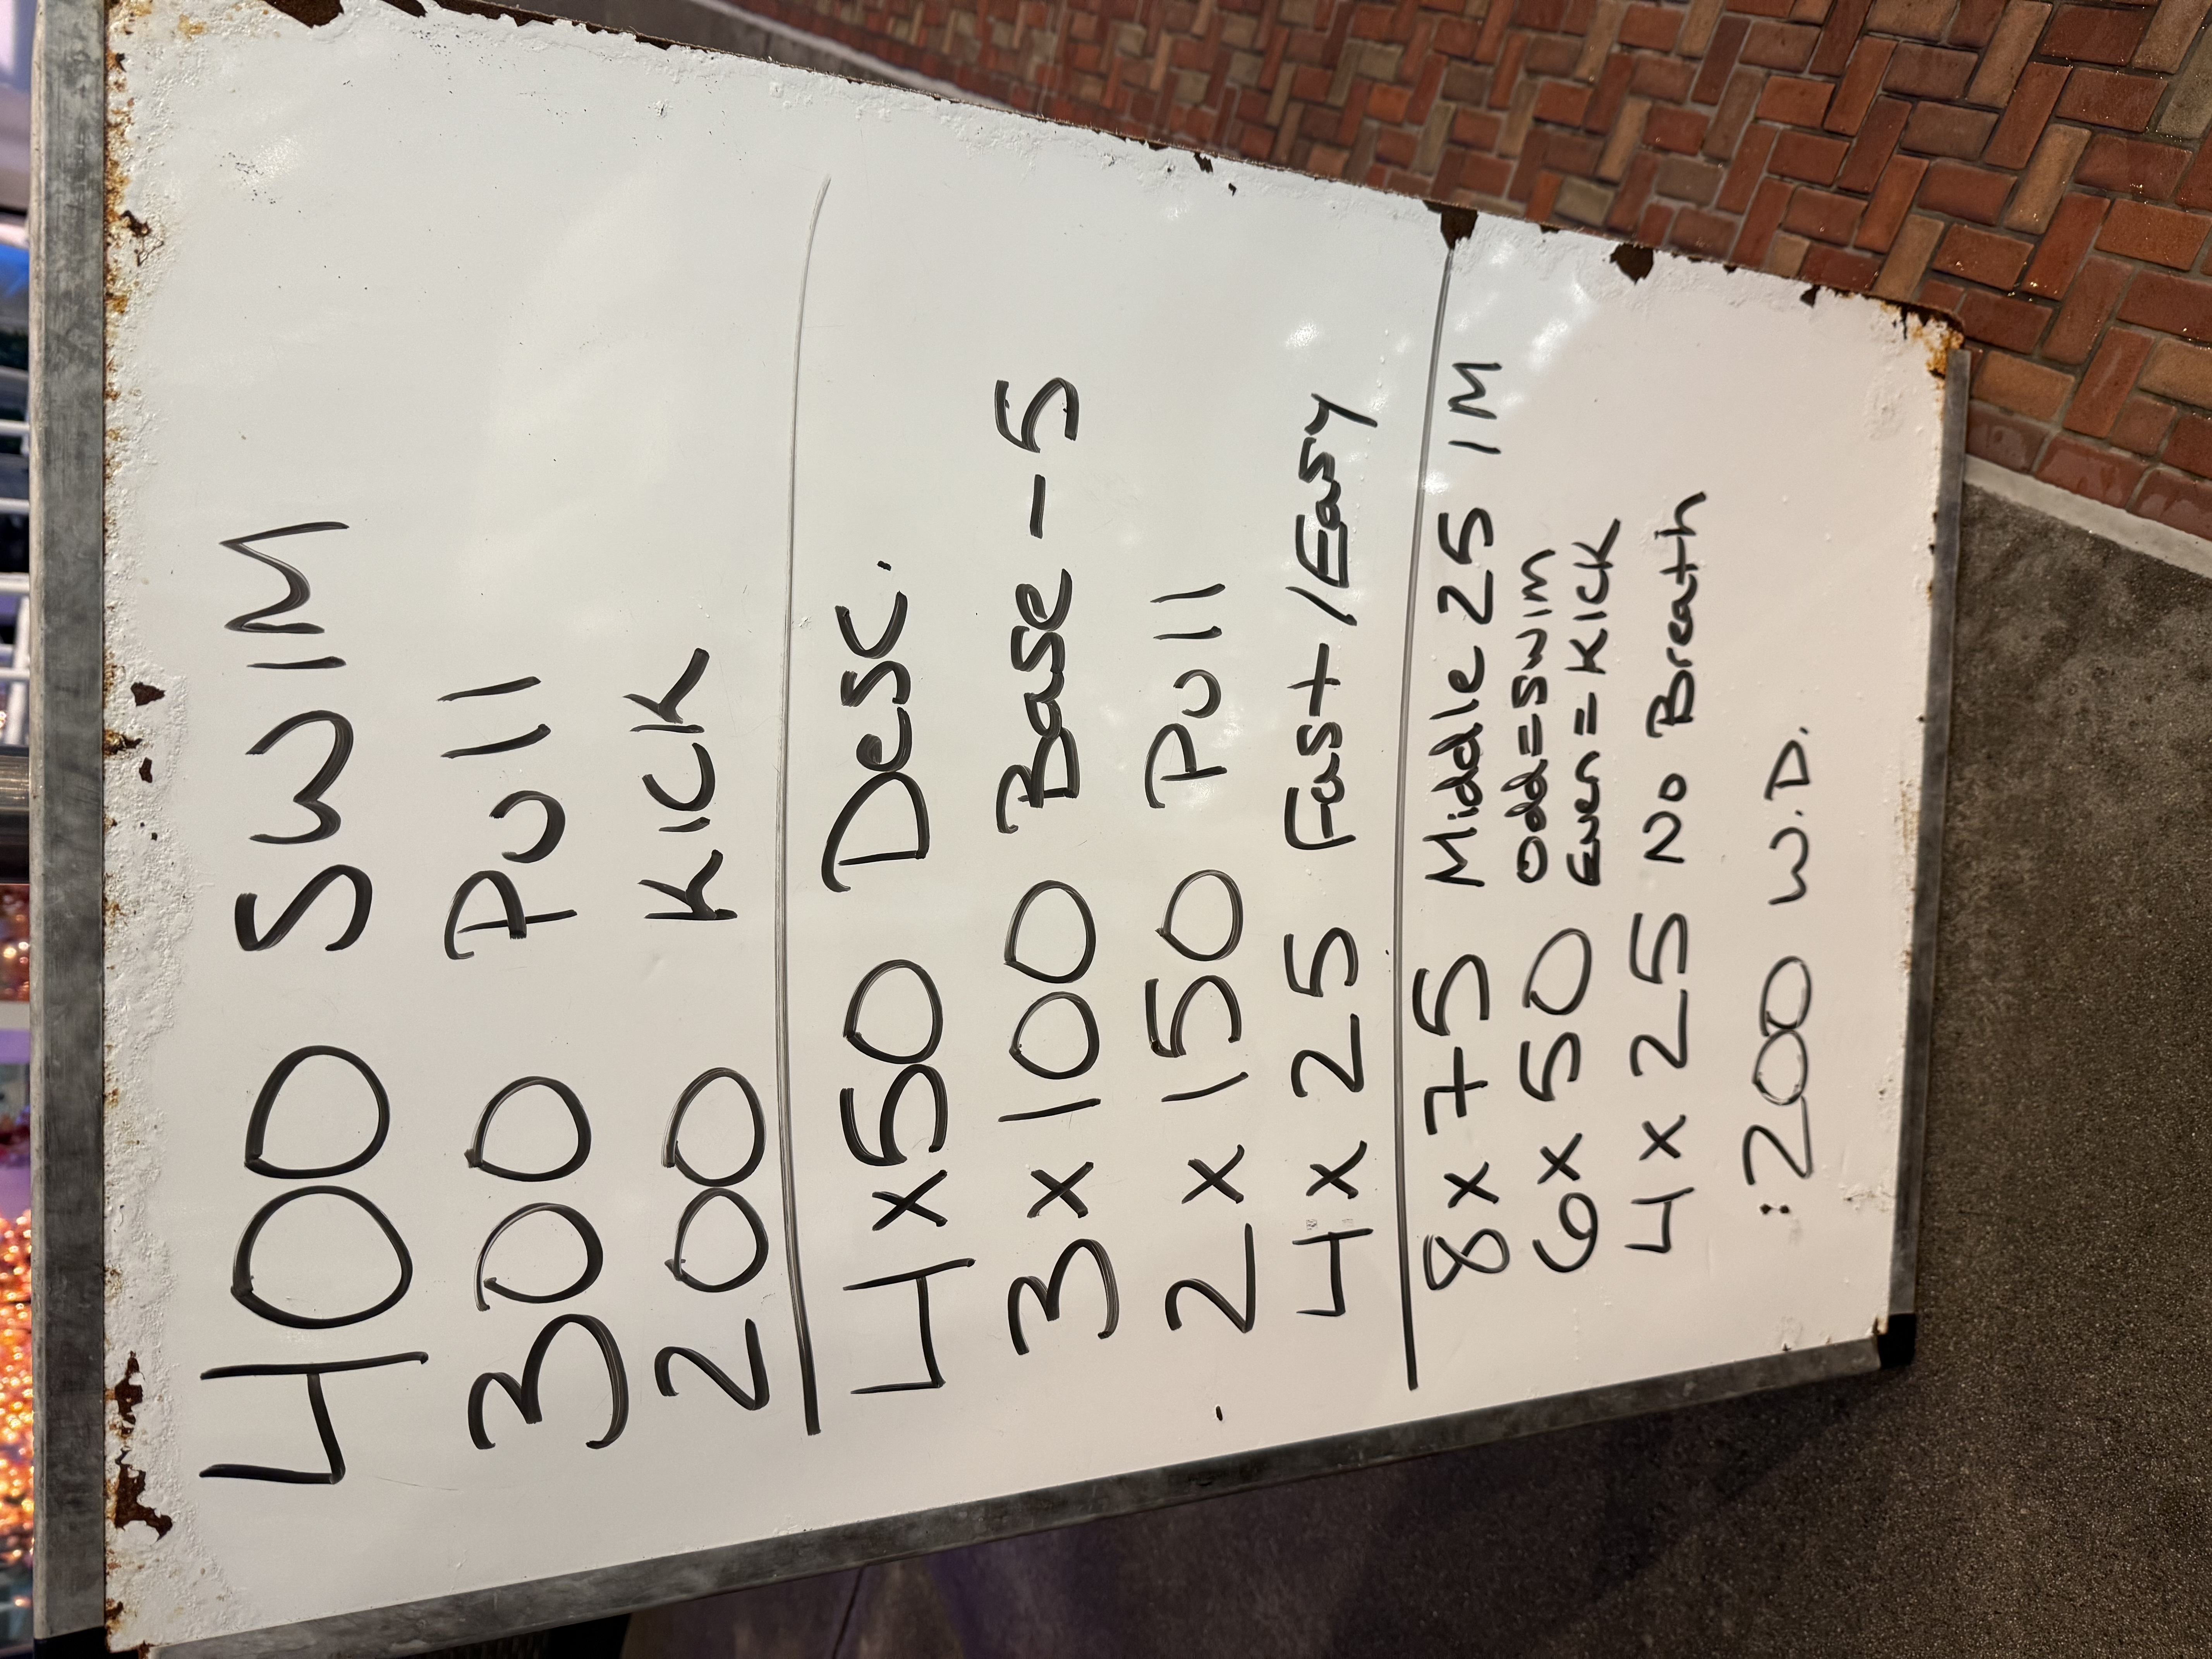 400 SWIM
300 Pull
200 KICK
4x50 Desc.
3x100 Base-5
2x150 Pull
4x25 Fast/Easy
8x75 Middle 25 IM
6x50 Odd=SWIM
Even=KICK
4x25 No Breath
:200 W.D.